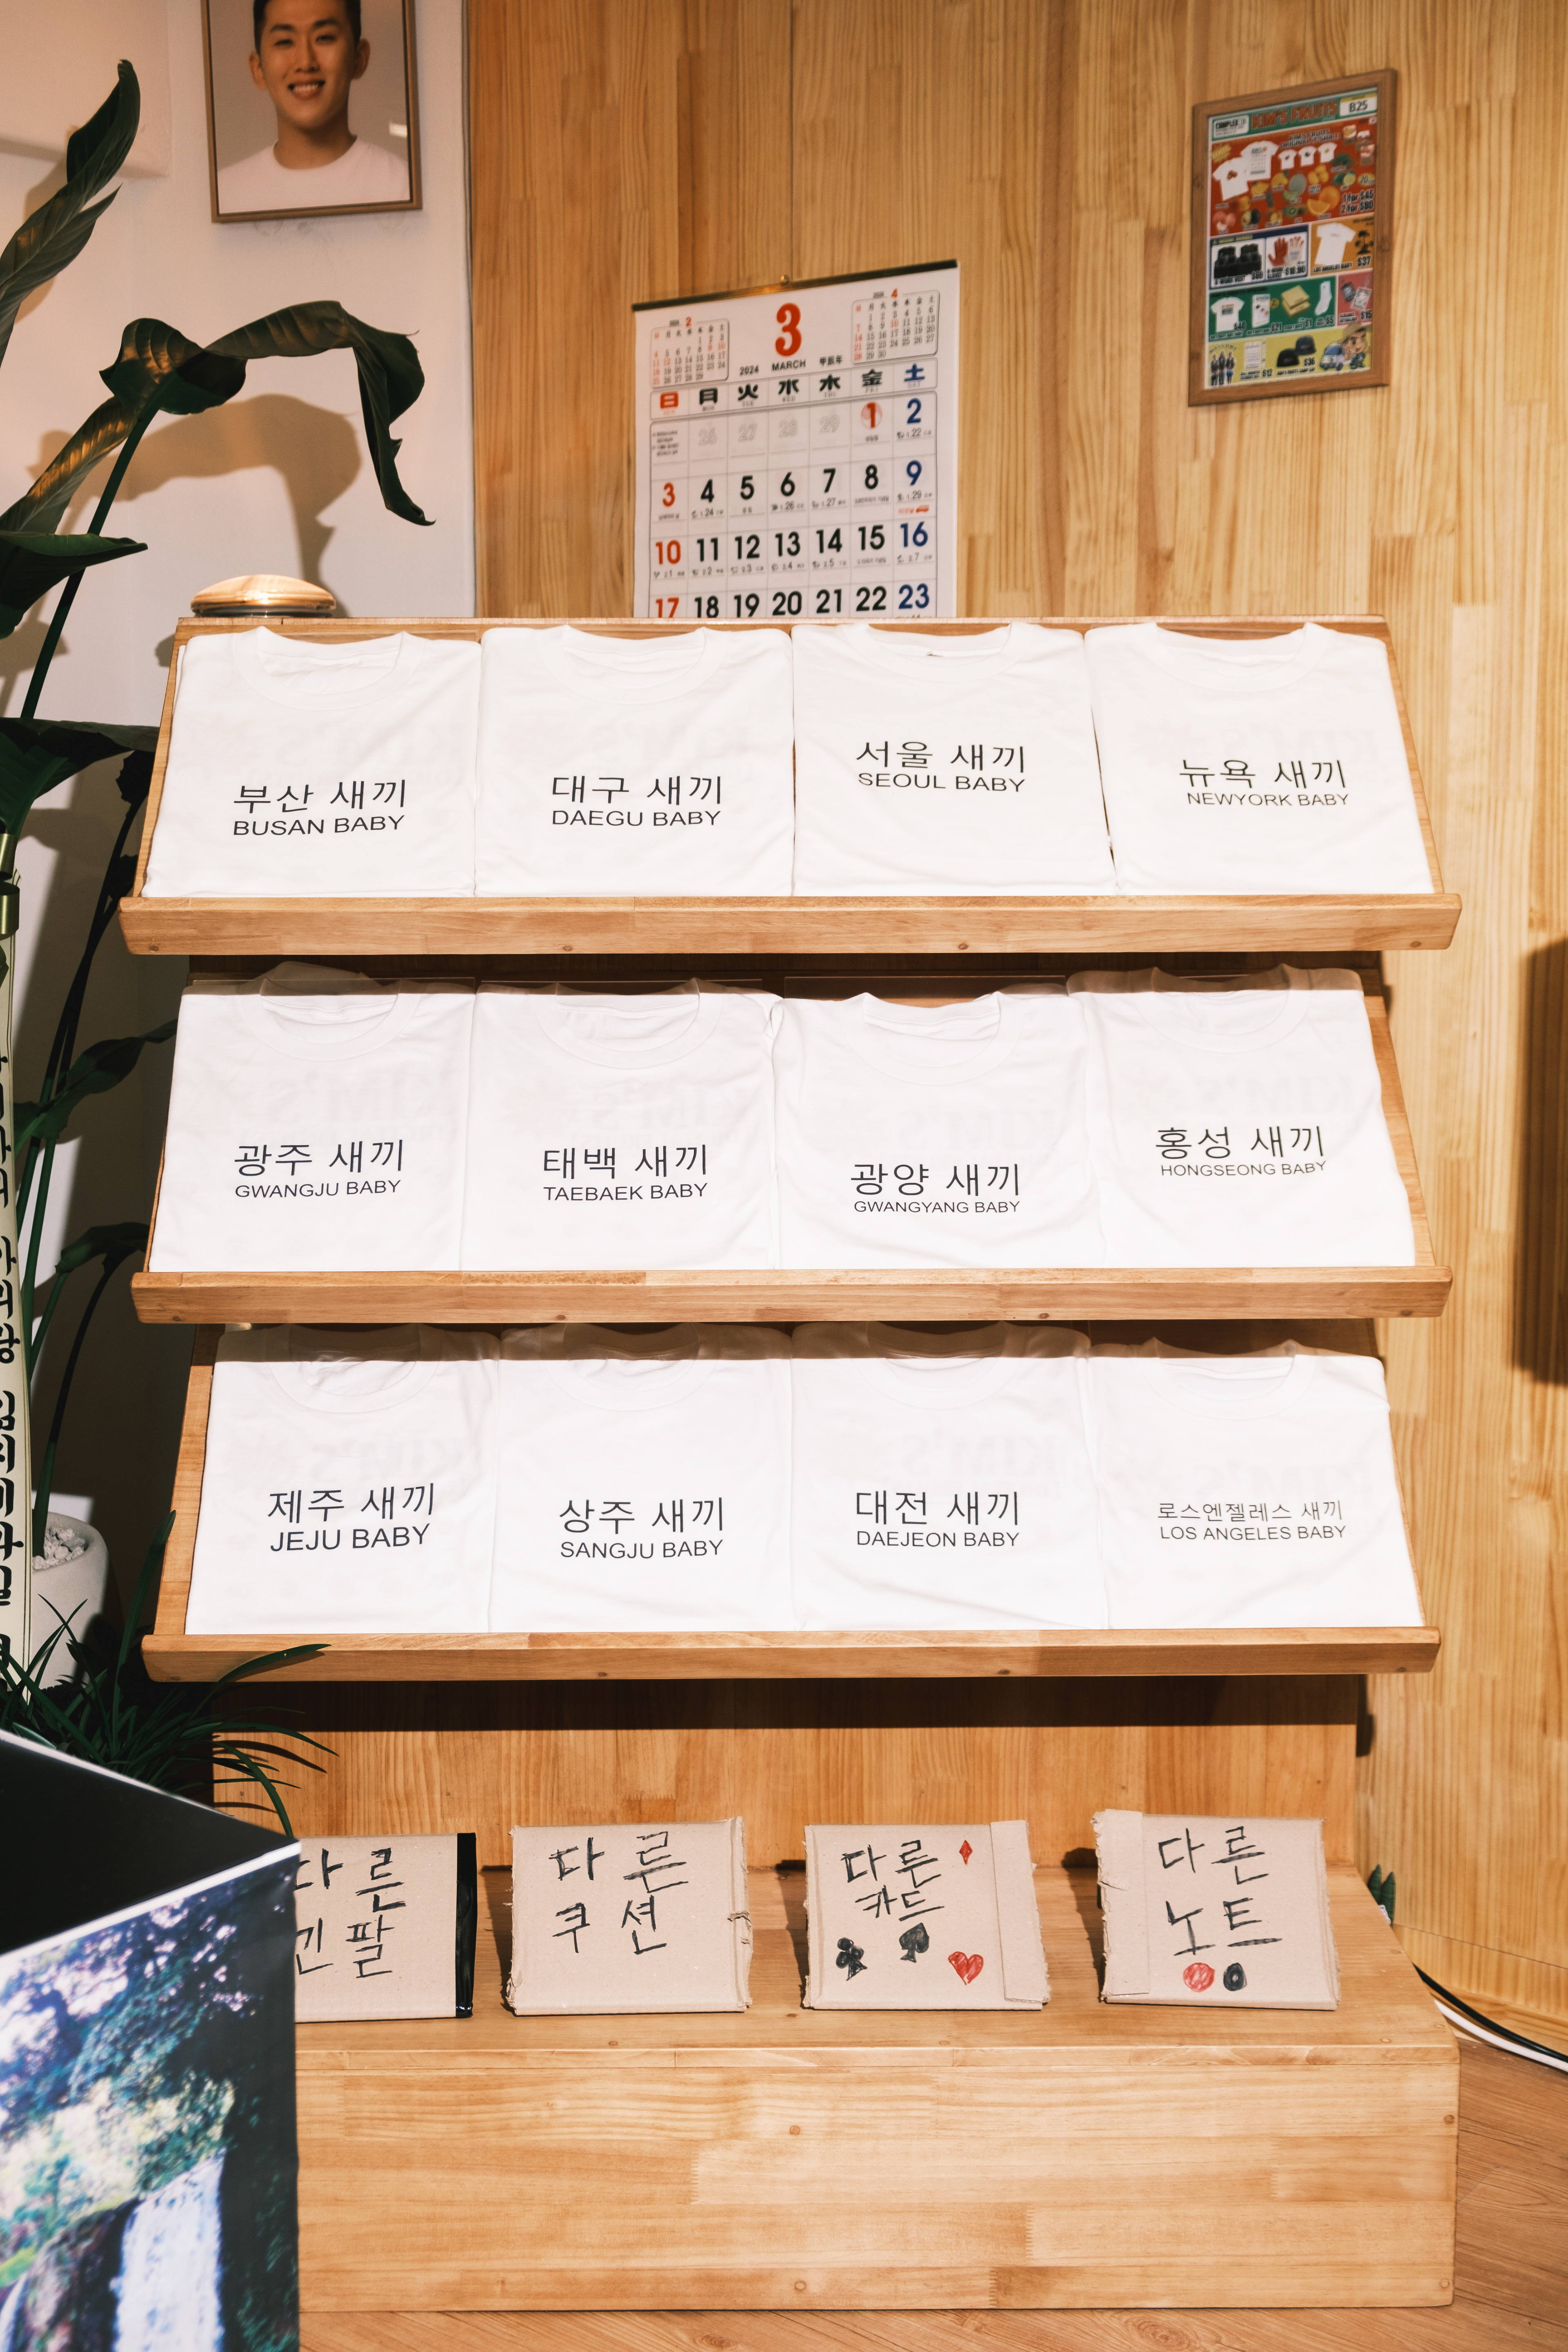 KIM'S FRUITS
B25
1 for $45
2 for $80
$37
2
3
4
2024
MARCH
甲辰年
日 月 火 水 木 金 土
26 27 28 29 1 2
3 4 5 6 7 8 9
10 11 12 13 14 15 16
17 18 19 20 21 22 23
부산 새끼
BUSAN BABY
대구 새끼
DAEGU BABY
서울 새끼
SEOUL BABY
뉴욕 새끼
NEWYORK BABY
광주 새끼
GWANGJU BABY
태백 새끼
TAEBAEK BABY
광양 새끼
GWANGYANG BABY
홍성 새끼
HONGSEONG BABY
제주 새끼
JEJU BABY
상주 새끼
SANGJU BABY
대전 새끼
DAEJEON BABY
로스엔젤레스 새끼
LOS ANGELES BABY
다른
긴팔
다른
쿠션
다른
카드
다른
노트